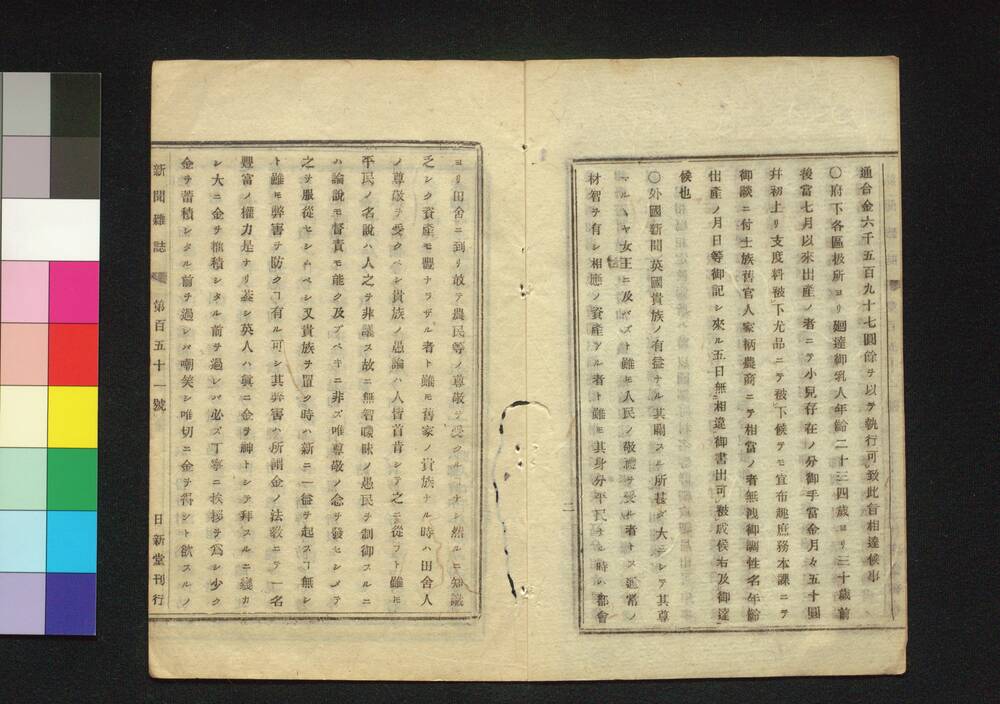 通合金六千五百九十七圓餘ヲ以テ執行可致此旨相達候事
〇府下各區扱所ヨリ廻達御乳人年齡二十三四歲ヨリ三十歲前
後當七月以來出產ノ者ニテ小兒存在ノ分御手當金月々五十圓
幷初上リ支度料被下尤品ニテ被下候テモ宜布趣庶務本課ニテ
御談ニ付士族舊官人家柄農商ニテ相當ノ者無洩御調姓名年齡
出產ノ月日等御記シ來ル五日無相違御書出可被成候右及御達
候也
〇外國新聞英國貴族ノ有益ナル其關スル所甚ダ大ニシテ其尊
ハ女王ニ及バズト雖モ人民ノ敬禮ヲ受ル者トス通常ノ
材智ヲ有シ相應ノ資產アル者ト雖モ其身分平民ナル時ハ都會
二
ヨリ田舍ニ到リ敢テ農民等ノ尊敬ヲ受クルコナシ然ルニ知識
乏シク資產モ豐ナラザル者ト雖モ舊家ノ貴族ナル時ハ田舍人
ノ尊敬ヲ受クベシ貴族ノ愚論ハ人皆首肯シテ之ニ從フト雖モ
平民ノ名說ハ人之ヲ非議ス故ニ無智曖昧ノ愚民ヲ制御スルニ
ハ論說モ督責モ能ク及ブベキニ非ズ唯尊敬ノ念ヲ發セシメテ
之ヲ服從セシムベシ又貴族ヲ置ク時ハ新ニ一益ヲ起スコ無シ
ト雖モ弊害ヲ防クコ有ル可シ其弊害ハ所謂金ノ法敎ニテ一名
豐富ノ權力是ナリ蓋シ英人ハ輿ニ金ヲ神トシテ拜スルニ異ナ
シ大ニ金ヲ積シタル前ヲ過レバ必ズ丁寧ニ挨拶ヲ爲シ少ク
金ヲ蓄積シタル前ヲ過レバ嘲笑シ唯切ニ金ヲ得ント欲スルノ
新聞雜誌 第百五十一號 日新堂刊行